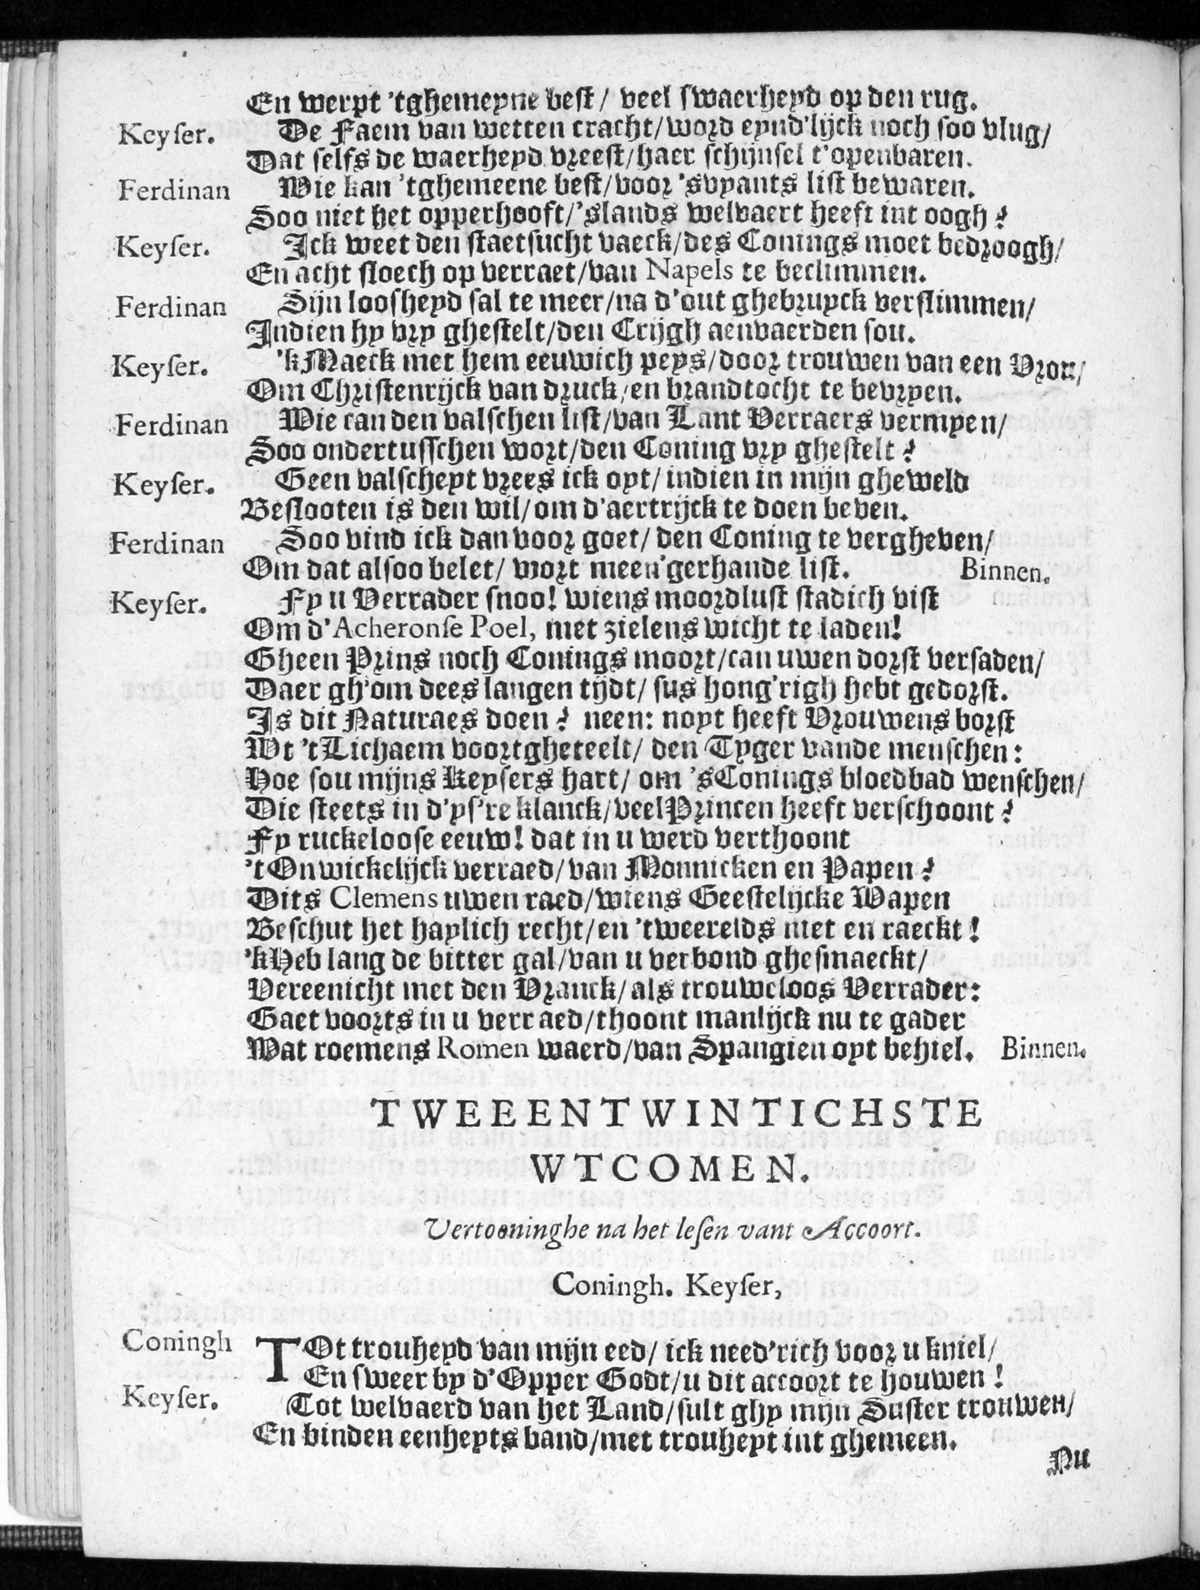 En werpt 'tghemeyne best/ veel swaerheyd op den rug.
Keyser. De Faem van wetten cracht/word eynd'lijck noch soo vlug/
Dat selfs de waerheyd vreest/haer schijnsel t'openbaren.
Ferdinan Wie kan 'tghemeene best/voor 'svyants list bewaren.
Soo niet het opperhooft/'slands welvaert heeft int oogh?
Keyser. Ick weet den staetsucht vaeck/des Conings moet bedroogh/
En acht sloech op verraet/van Napels te beclimmen.
Ferdinan Sijn loosheyd sal te meer/na d'out ghebruyck verslimmen/
Indien hy vry ghestelt/den Crijgh aenvaerden sou.
Keyser. 'k Maeck met hem eeuwich peys/door trouwen van een Vrou/
Om Christenrijck van druck/en brandtocht te bevryen.
Ferdinan Wie can den valschen list/van Lant Verraers vermyen/
Soo ondertusschen wort/den Coning vry ghestelt?
Keyser. Geen valscheyt vrees ick oyt/indien in mijn gheweld
Beslooten is den wil/om d'aertrijck te doen beven.
Ferdinan Soo vind ick dan voor goet/ den Coning te vergheven/
Om dat alsoo belet/ wort meen'gerhande list. Binnen.
Keyser. Fy u Verrader snoo! wiens moordlust stadich vist
Om d'Acheronse Poel, met zielens wicht te laden!
Gheen Prins noch Conings moort/can uwen dorst versaden/
Daer gh'om dees langen tijdt/ sus hong'righ hebt gedorst.
Is dit Naturaes doen? neen: noyt heeft Vrouwens borst
Wt 't Lichaem voortgheteelt/ den Tyger vande menschen:
Hoe sou mijns Keysers hart/ om 'sConings bloedbad wenschen/
Die steets in d'ys're klanck/veel Princen heeft verschoont?
Fy ruckeloose eeuw! dat in u werd verthoont
't Onwickelijck verraed/van Monnicken en Papen?
Dits Clemens uwen raed/wiens Geestelijcke Wapen
Beschut het haylich recht/en 'tweerelds niet en raeckt!
'k Heb lang de bitter gal/van u verbond ghesmaeckt/
Vereenicht met den Vranck/als trouweloos Verrader:
Gaet voorts in u verraed/thoont manlijck nu te gader
Wat roemens Romen waerd/van Spangien oyt behiel. Binnen.
TWEEENTWINTICHSTE
WTCOMEN.
Vertooninghe na het lesen vant Accoort.
Coningh. Keyser,
Coningh TOt trouheyd van mijn eed/ ick need'rich voor u kniel/
En sweer by d'Opper Godt/u dit accoort te houwen!
Keyser. Tot welvaerd van het Land/sult ghy mijn Suster trouwen/
En binden eenheyts band/met trouheyt int ghemeen.
Nu